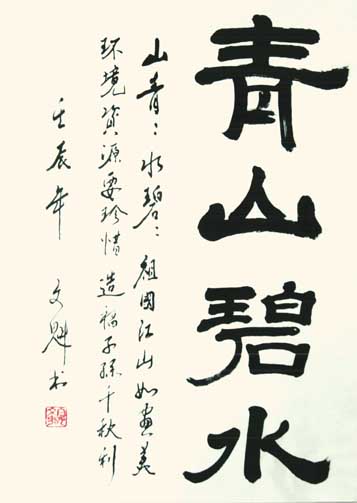 青山碧水
山青：水碧：祖国江山如畫美
环境資源要珍惜 造福子孫千秋利
壬辰年 文魁书